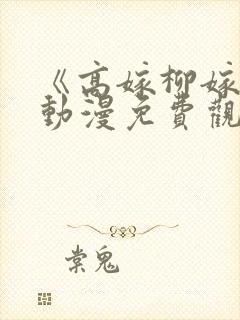 《高嫁柳嫁
動漫免費觀
棠鬼